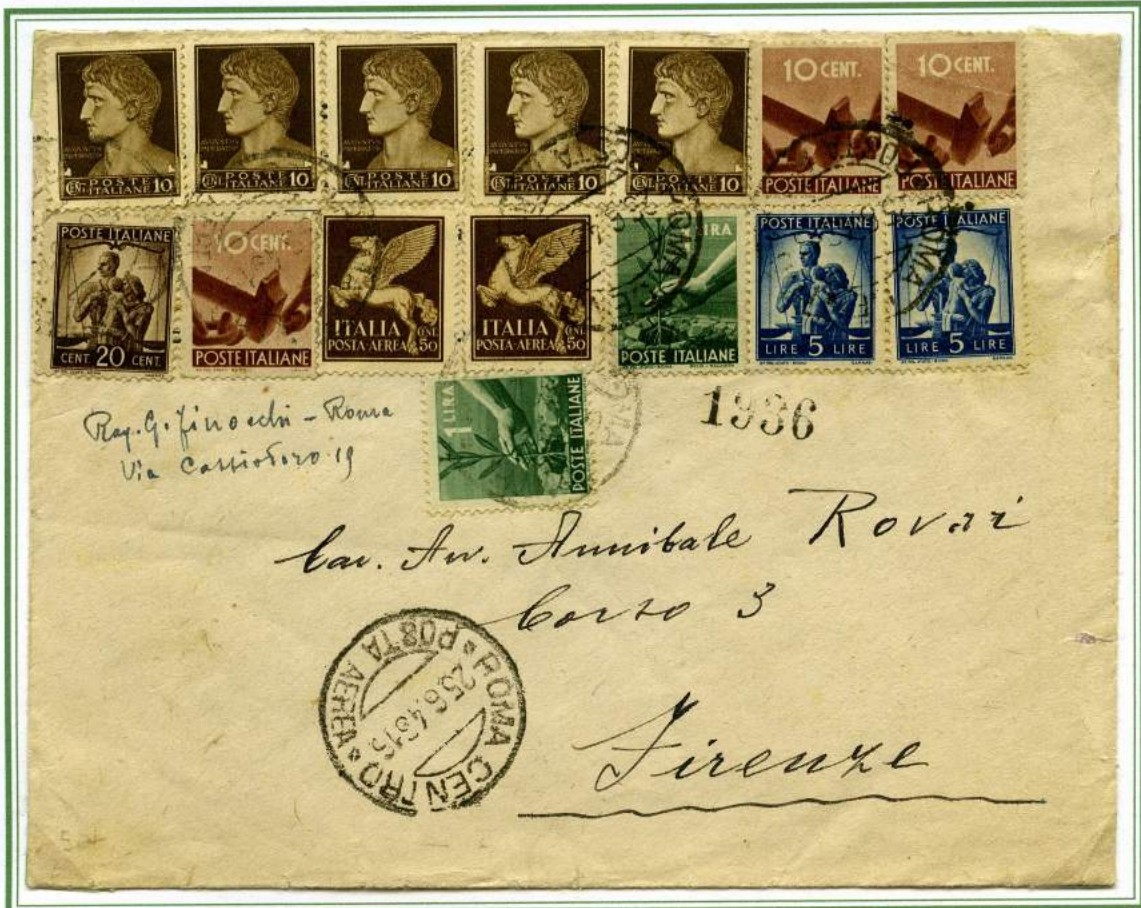 CENT. POSTE ITALIANE 10
CENT. POSTE ITALIANE 10
CENT. POSTE ITALIANE 10
CENT. POSTE ITALIANE 10
CENT. POSTE ITALIANE 10
10 CENT.
POSTE ITALIANE
10 CENT.
POSTE ITALIANE
POSTE ITALIANE
CENT. 20 CENT.
10 CENT.
POSTE ITALIANE
ITALIA
POSTA-AEREA CENT. 50
ITALIA
POSTA-AEREA CENT. 50
LIRA
POSTE ITALIANE
POSTE ITALIANE
LIRE 5 LIRE
POSTE ITALIANE
LIRE 5 LIRE
Rag. G. Finocchi - Roma
Via Cassiodoro 19
1 LIRA
POSTE ITALIANE
ROMA
1936
Cav. Av. Annibale Rovari
Corso 3
Firenze
ROMA CENTRO * POSTA AEREA *
25.6.46 16